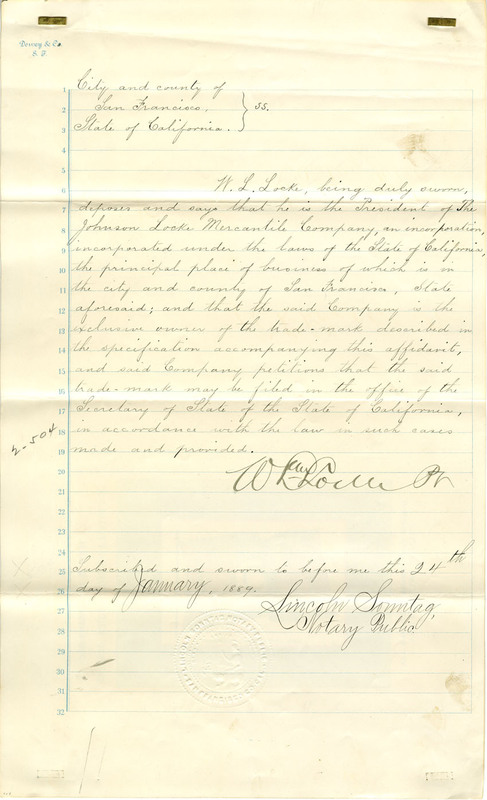 Dewey & Co.
S. F.
1 City and county of
2 San Francisco, } ss.
3 State of California.
4
5
6 W. L. Locke, being duly sworn,
7 deposes and says that he is the President of The
8 Johnson Locke Mercantile Company, an incorporation,
9 incorporated under the laws of the State of California,
10 the principal place of business of which is in
11 the city and county of San Francisco, State
12 aforesaid; and that the said Company is the
13 exclusive owner of the trade-mark described in
14 the specification accompanying this affidavit,
15 and said Company petitions that the said
16 trade-mark may be filed in the office of the
17 Secretary of State of the State of California,
18 in accordance with the law in such cases
19 made and provided.
2-504
20
21
25 Subscribed and sworn to before me this 24th
26 day of January, 1889.
27 Lincoln Sonntag,
28 Notary Public
29
30
31
32